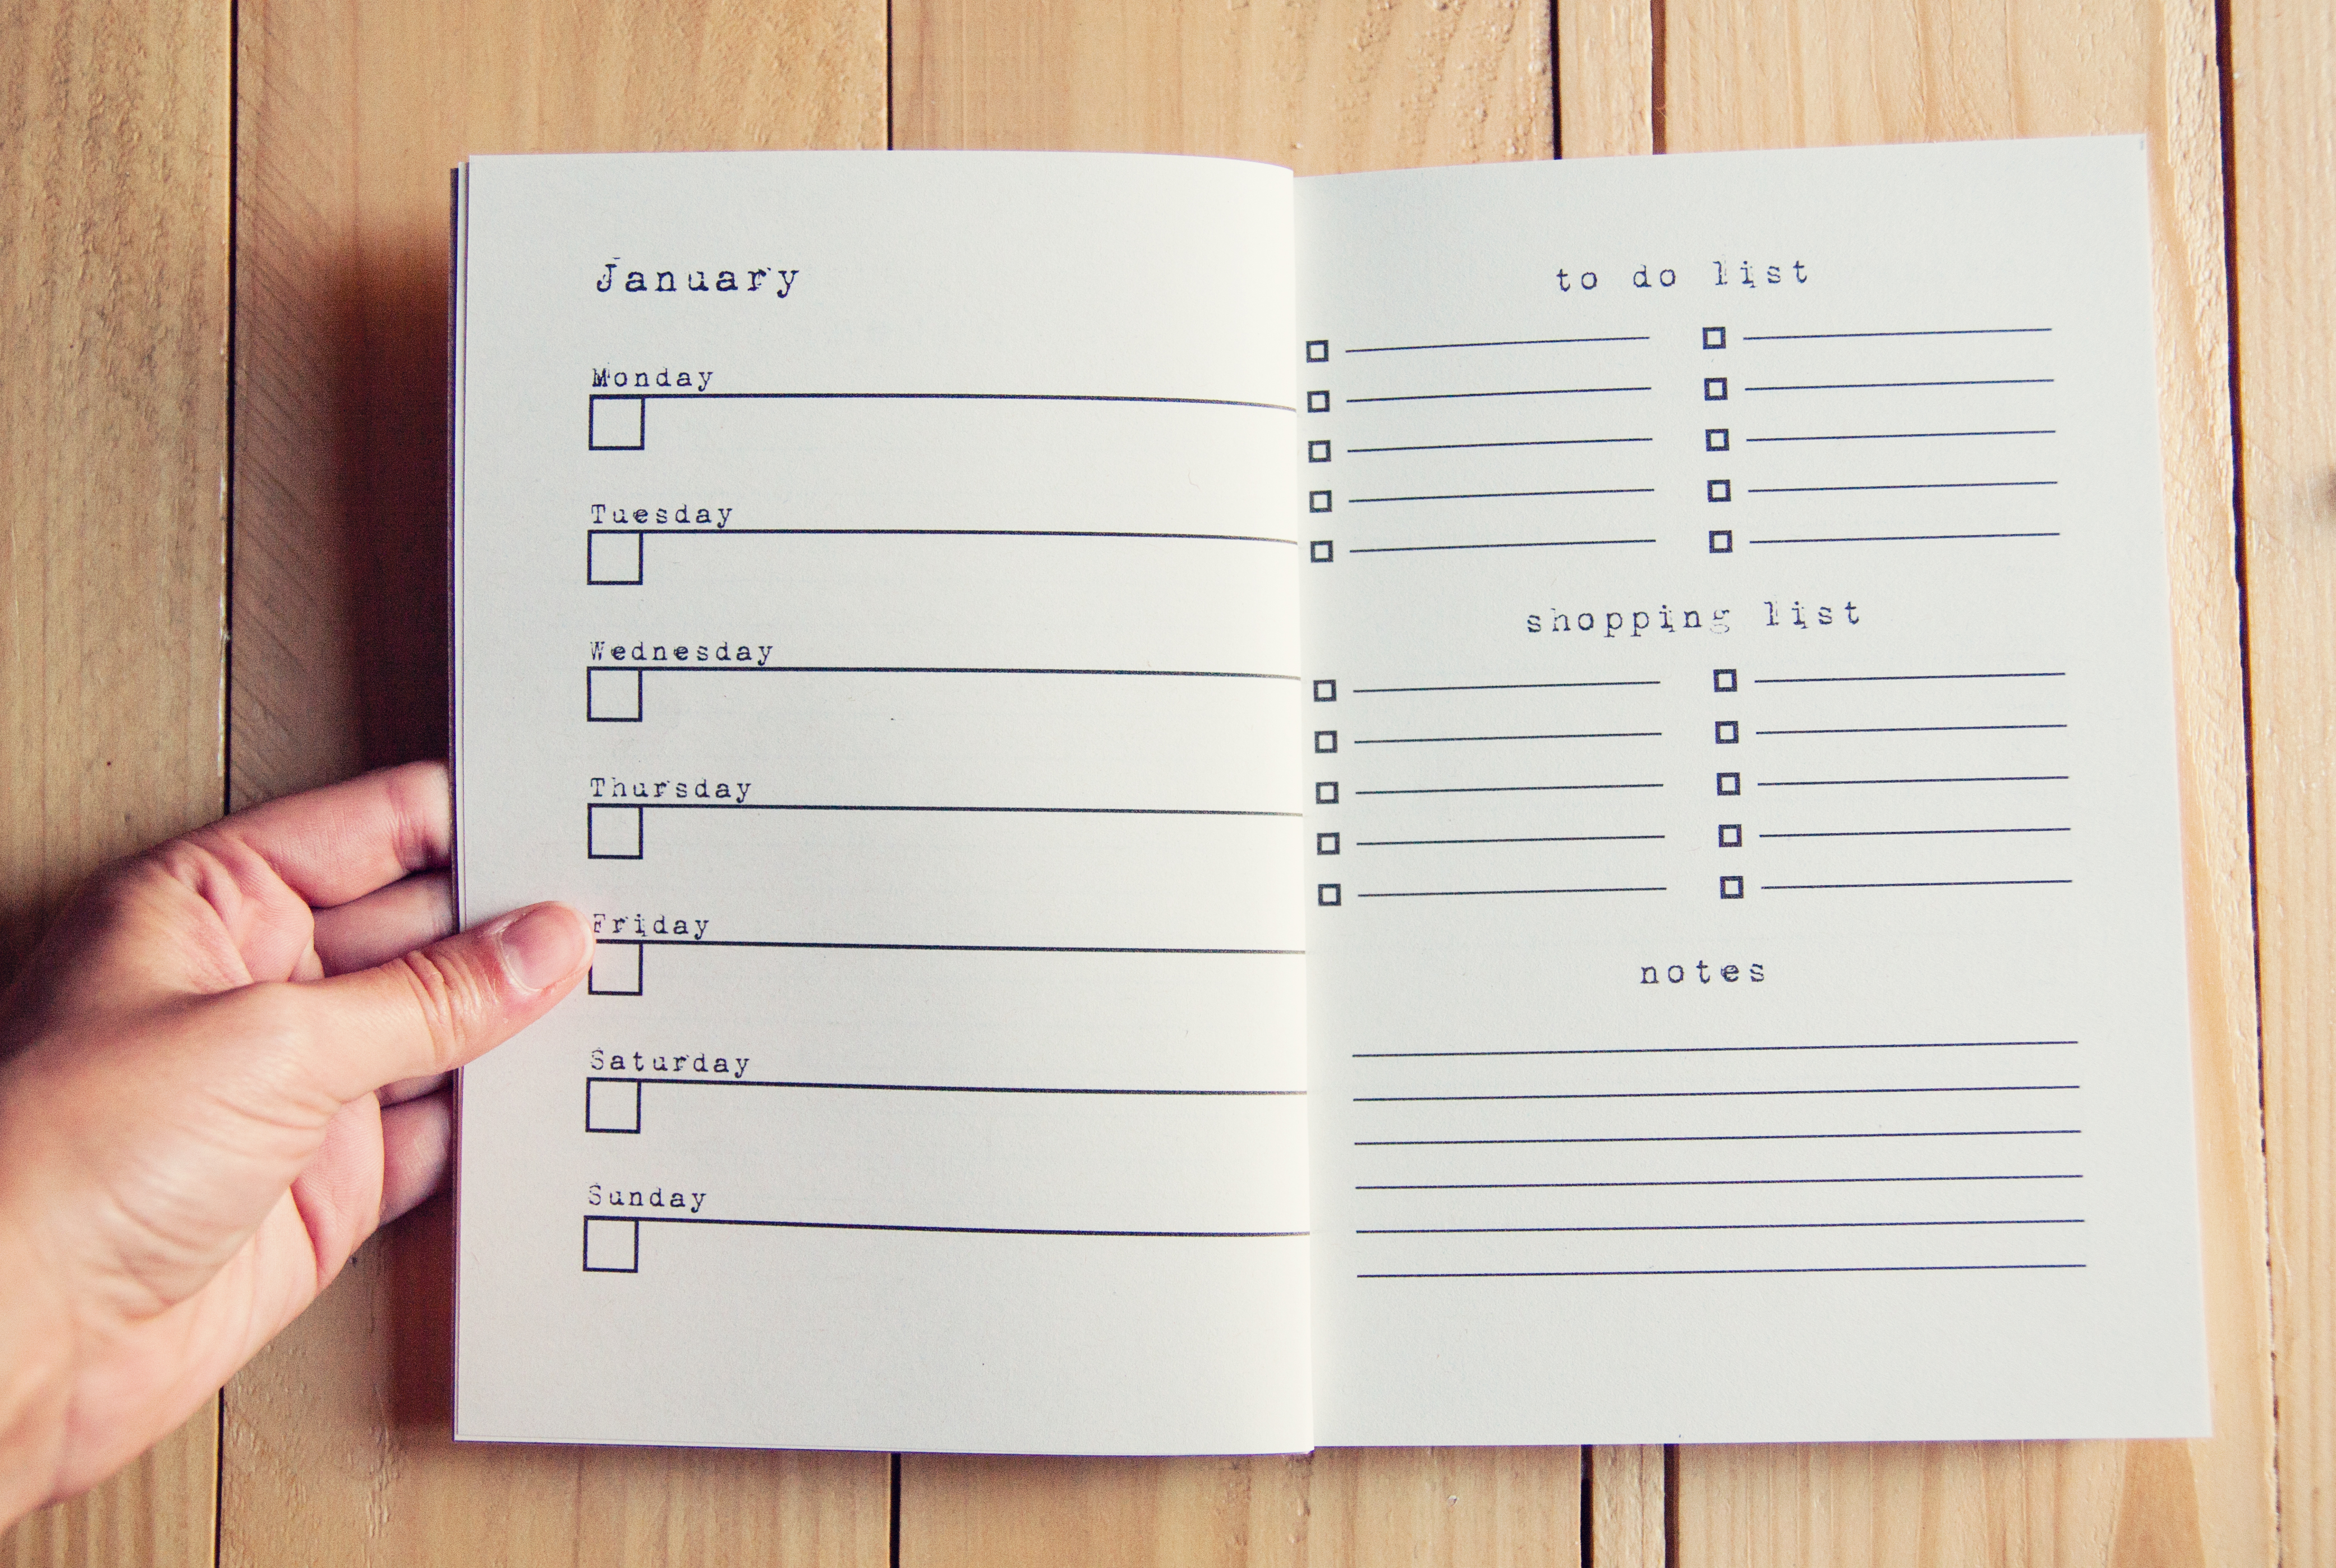 January
Monday
Tuesday
Wednesday
Thursday
Friday
Saturday
Sunday
to do list
shopping list
notes